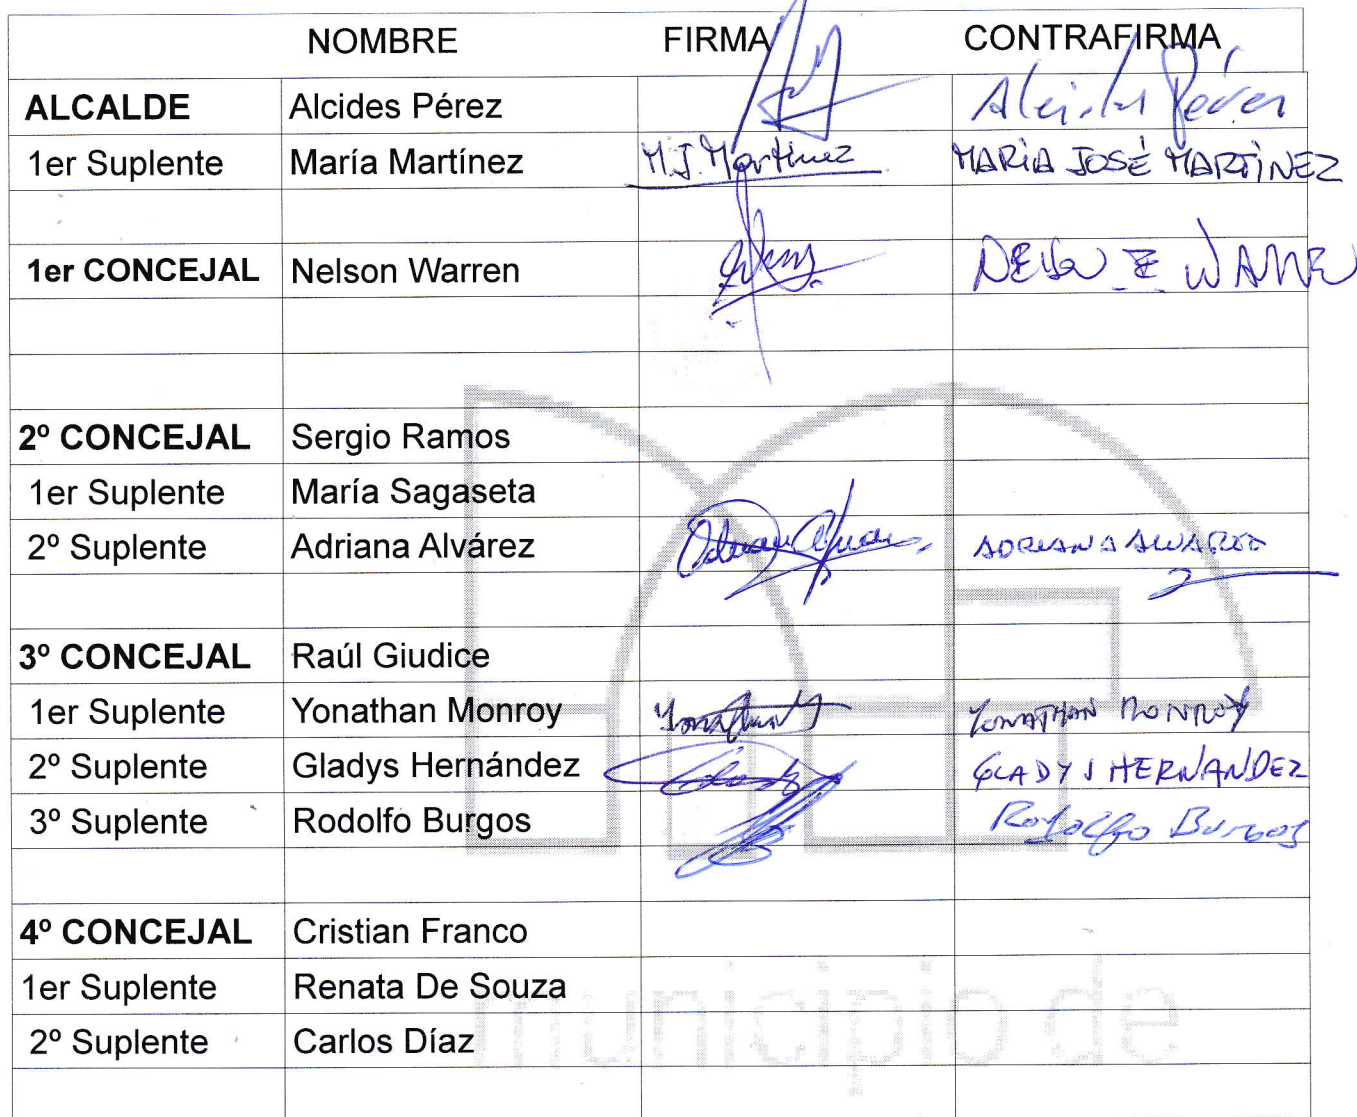 NOMBRE FIRMA CONTRAFIRMA
ALCALDE Alcides Pérez Alcides Pérez
1er Suplente María Martínez M.J. Martínez MARÍA JOSÉ MARTÍNEZ
1er CONCEJAL Nelson Warren
2º CONCEJAL Sergio Ramos
1er Suplente María Sagaseta
2º Suplente Adriana Alvárez ADRIANA ALVAREZ
3º CONCEJAL Raúl Giudice
1er Suplente Yonathan Monroy Yonathan YONATHAN MONROY
2º Suplente Gladys Hernández GLADYS HERNANDEZ
3º Suplente Rodolfo Burgos Rodolfo Burgos
4º CONCEJAL Cristian Franco
1er Suplente Renata De Souza
2º Suplente Carlos Díaz
municipio de